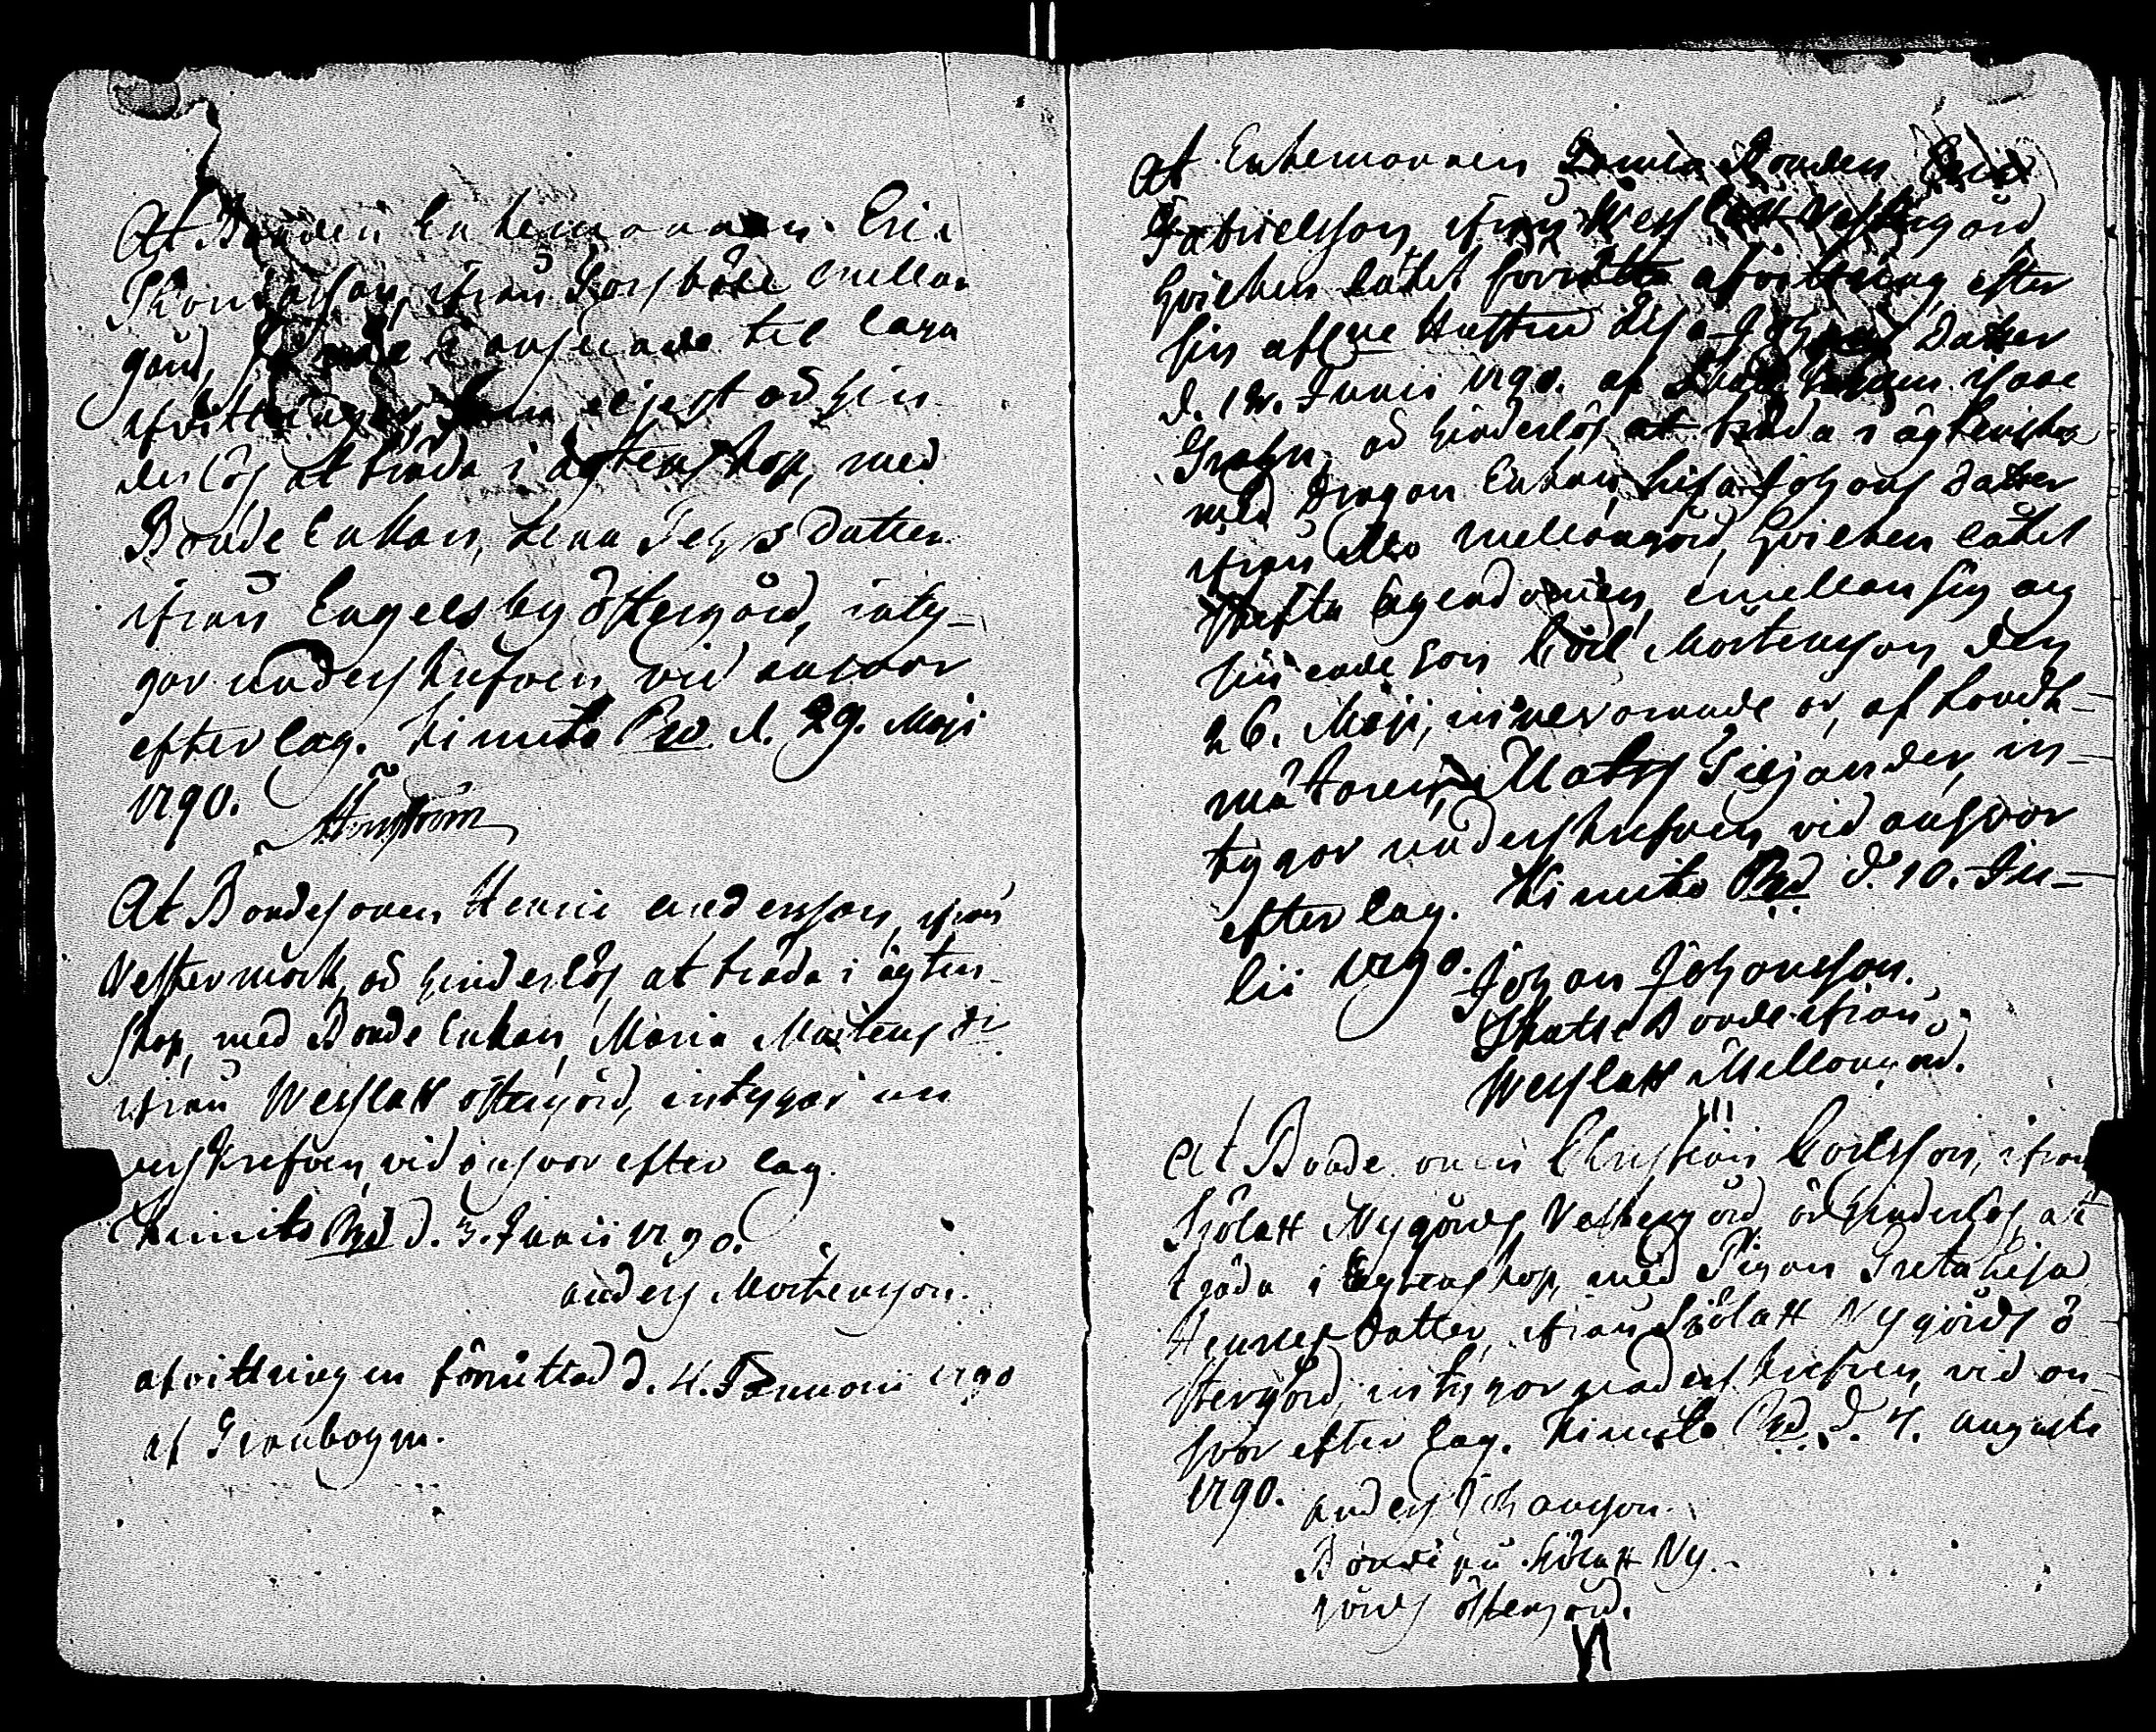 At Bonden Enkemannen Eric
Thomasson, ifrån Norsböle mellan
gård, til laga
afvittringen ejest är hin
derlös at träda i ägtenskap, med
Bonde Enkan, Lena Jegrs Datter
ifrån Engelsby östergård, inty-
gar underskrefven vid answar
efter lag. Kimito Pgd d. 29. Maji
1790.
At Bondesonen Henric andersson, ifrån
Vestermark, är hinderlös at träda i ägten-
skap, med Bonde Enkan, Maria Mårtens dr
ifrån Weslax östergård, intygar un
derskrefven, vid answar efter lag.
Kimito Pgd d. 3. Junii 1790.
anders Mortensson.
afvittringen förrättad d. 4. Januarii 1790
af Granbogm.
At Enkemannen Bonden Eric
Gabrielsson, ifrån Weslax Vestergård
hvilken låtit förrätta afvittring efter
sin aflne Hustru Lisa Johans Datter
d. 12. Junii 1790. af
Grahn, är hinderlös at träda i ägtenskap
med Dragon Enkan, Lisa Johans datter
ifrån mellangård, hvilken låtit
skifta Egendomen, emellan sig ag
sin ende son Carl Mårtensson den
26. Maji, innevarande år, af Landt-
mätaren, Mats Giljander, in-
tygar underskrefven, vid answar
efter lag. Kimito Pgd d. 10. Ju-
lii 1790. Johan Johansson.
Skatte Bonde ifrån
Weslax Mellangård.
At Bonde sonen Christian Carlsson, ifrån
Sjölax Nygårds Vestergård är hinderlös, at
träda i Egtenskap, med Pigan Greta Lisa
Henrics Datter, ifrån Sjölax Nygårds ö
stergård, intygar underskrefven, vid an-
svar efter lag. Kimito Pgd. d. 4. augusti
1790. anders Johansson.
Bonde på Sjölax Ny-
gårds östergård.